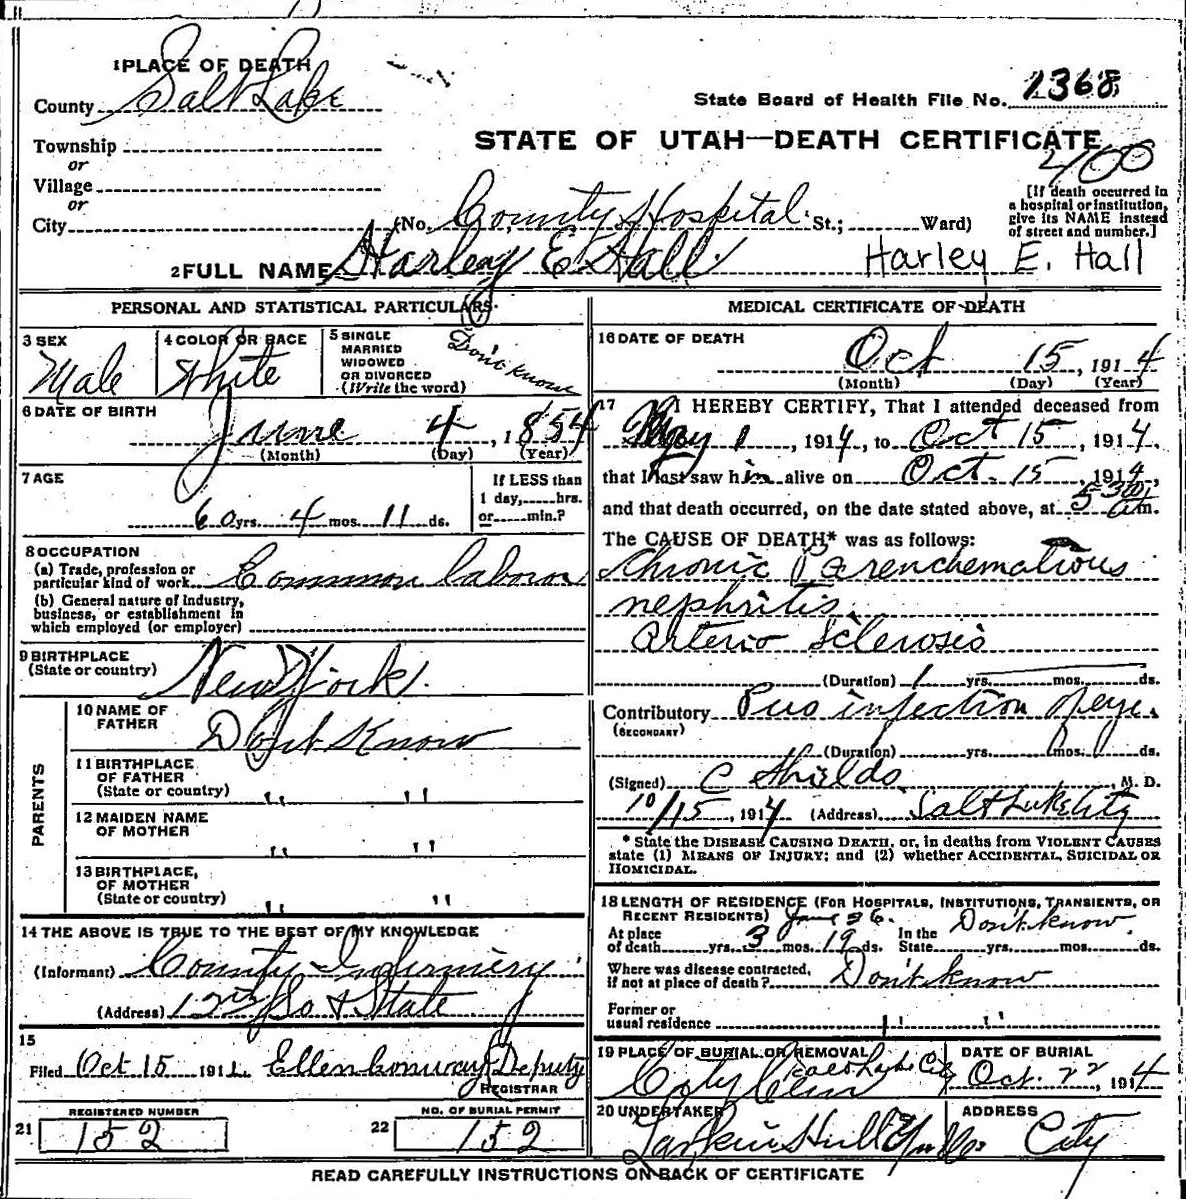 1 PLACE OF DEATH
County Salt Lake
State Board of Health File No. 1368
Township
or
Village
or
City
STATE OF UTAH—DEATH CERTIFICATE
400
(No. County Hospital St.; Ward)
[If death occurred in a hospital or institution, give its NAME instead of street and number.]
2 FULL NAME Harley E Hall Harley E. Hall
PERSONAL AND STATISTICAL PARTICULARS
3 SEX Male
4 COLOR OR RACE White
5 SINGLE MARRIED WIDOWED OR DIVORCED (Write the word) Don't know
6 DATE OF BIRTH
June 4, 1854
(Month) (Day) (Year)
7 AGE
60 yrs. 4 mos. 11 ds.
If LESS than 1 day, hrs. or min.?
8 OCCUPATION
(a) Trade, profession or particular kind of work Common labor
(b) General nature of industry, business, or establishment in which employed (or employer)
9 BIRTHPLACE (State or country) New York.
PARENTS
10 NAME OF FATHER Don't Know
11 BIRTHPLACE OF FATHER (State or country) " "
12 MAIDEN NAME OF MOTHER " "
13 BIRTHPLACE, OF MOTHER (State or country) " "
14 THE ABOVE IS TRUE TO THE BEST OF MY KNOWLEDGE
(Informant) County Infirmiery
(Address) 12th So & State
15
Filed Oct 15 191 Ellen Deputy
REGISTRAR
REGISTERED NUMBER
21 152
NO. OF BURIAL PERMIT
22 152
MEDICAL CERTIFICATE OF DEATH
16 DATE OF DEATH
Oct 15, 1914
(Month) (Day) (Year)
17 I HEREBY CERTIFY, That I attended deceased from
May 1, 1914, to Oct 15, 1914.
that I last saw him alive on Oct. 15 1914,
and that death occurred, on the date stated above, at 5 30 am.
The CAUSE OF DEATH* was as follows:
Chronic Parenchematious
nephritis
Arterio Sclerosis
(Duration) 1 yrs. mos. ds.
Contributory Pus infection of eye.
(SECONDARY)
(Duration) yrs. mos. ds.
(Signed) C Shields, M. D.
10/15, 1914 (Address) Salt Lake City
* State the DISEASE CAUSING DEATH, or, in deaths from VIOLENT CAUSES
state (1) MEANS OF INJURY; and (2) whether ACCIDENTAL, SUICIDAL OR
HOMICIDAL.
18 LENGTH OF RESIDENCE (FOR HOSPITALS, INSTITUTIONS, TRANSIENTS, OR
RECENT RESIDENTS) June 26.
At place of death yrs. 3 mos. 19 ds. In the State Don't know. yrs. mos. ds.
Where was disease contracted, if not at place of death? Don't know
Former or usual residence " "
19 PLACE OF BURIAL OR REMOVAL City Cem Salt Lake City
DATE OF BURIAL Oct. 22, 1914
20 UNDERTAKER Larkin Hull
ADDRESS City
READ CAREFULLY INSTRUCTIONS ON BACK OF CERTIFICATE